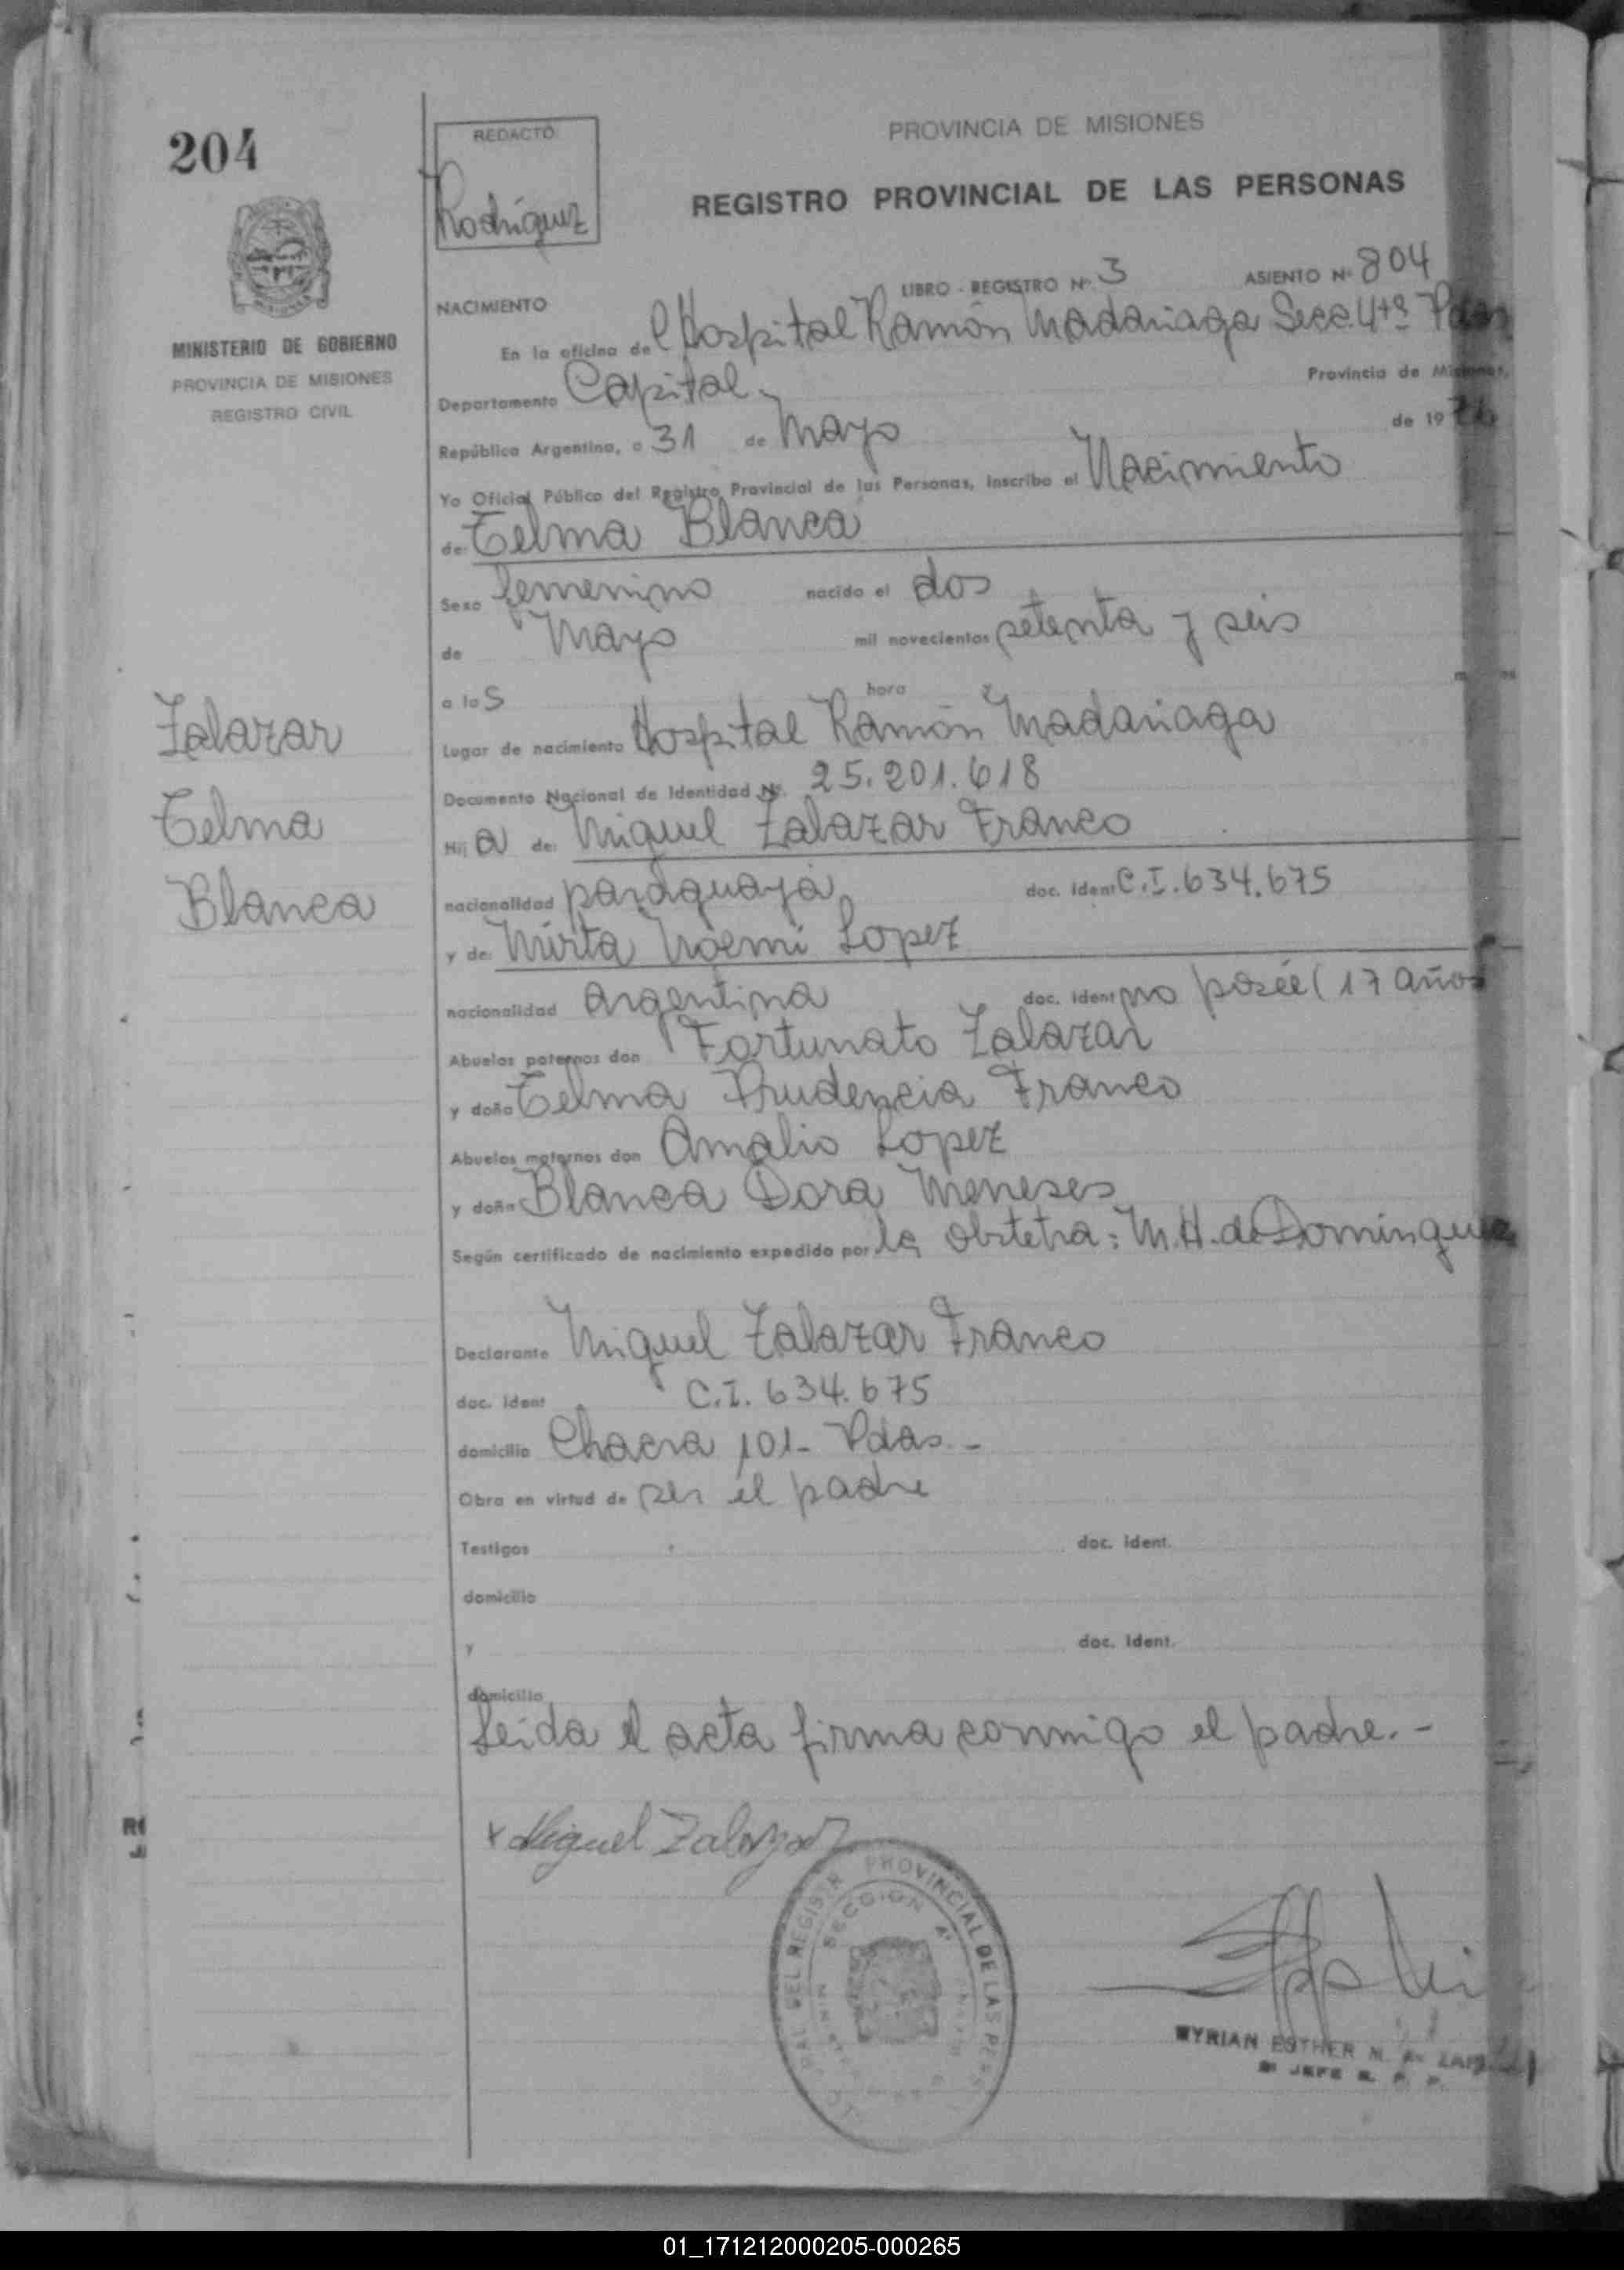 204
REDACTÓ
Rodríguez
PROVINCIA DE MISIONES
REGISTRO PROVINCIAL DE LAS PERSONAS
MINISTERIO DE GOBIERNO
PROVINCIA DE MISIONES
REGISTRO CIVIL
LIBRO - REGISTRO Nº. 3 ASIENTO Nº 804
NACIMIENTO
En la oficina del Hospital Ramón Madariaga Secc. 4ta Pdas
Departamento Capital.- Provincia de Misiones,
República Argentina, a 31 de Mayo de 1976
Yo Oficial Público del Registro Provincial de las Personas, inscribo el Nacimiento
de: Telma Blanca
Sexo femenino nacido el dos
de Mayo mil novecientos setenta y seis
a las hora
Lugar de nacimiento Hospital Ramón Madariaga
Documento Nacional de Identidad Nº. 25.201.618
Hija de: Miguel Zalazar Franco
nacionalidad paraguaya doc. ident C.I. 634.675
y de: Mirta Noemi Lopez
nacionalidad argentina doc. ident no posée (17 años
Abuelos paternos don Fortunato Zalazar
y doña Telma Prudencia Franco
Abuelos maternos don Amalio Lopez
y doña Blanca Dora Meneses
Según certificado de nacimiento expedido por la Obstetra: M.H. de Dominguez
Declarante Miguel Zalazar Franco
doc. ident C.I. 634.675
domicilio Chacra 101- Pdas.-
Obra en virtud de ser el padre
Testigos doc. ident.
domicilio
y doc. ident.
domicilio
Leida el acta firma conmigo el padre.-
Zalazar
Telma
Blanca
x Miguel Zalazar
PROVINCIAL DE LAS PERS
SECCION 4ª
MYRIAN ESTHER M. de
JEFE R. P. P.
01_171212000205-000265